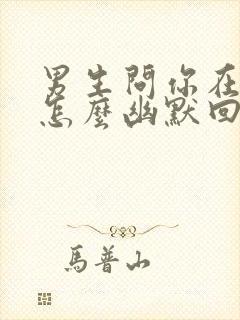 男生問你在
怎麼幽默回
馬普山